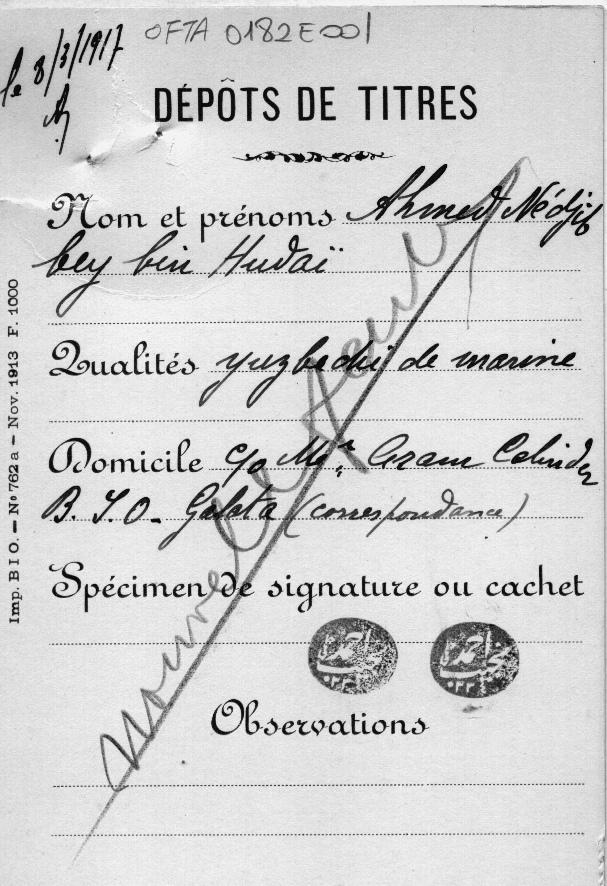 OFTA 0182E001
le 8/3/1917
DÉPÔTS DE TITRES
Nom et prénoms Ahmed Nédjib
bey bin Hudaï
Qualités yuzbachi de marine
Domicile c/o Mr. Aram
B. I. O. - Galata (correspondance)
Spécimen de signature ou cachet
احمد نجيب
احمد نجيب
Observations
Nouvelle
Imp. B I O. – Nº 762 a – Nov. 1913 F. 1000